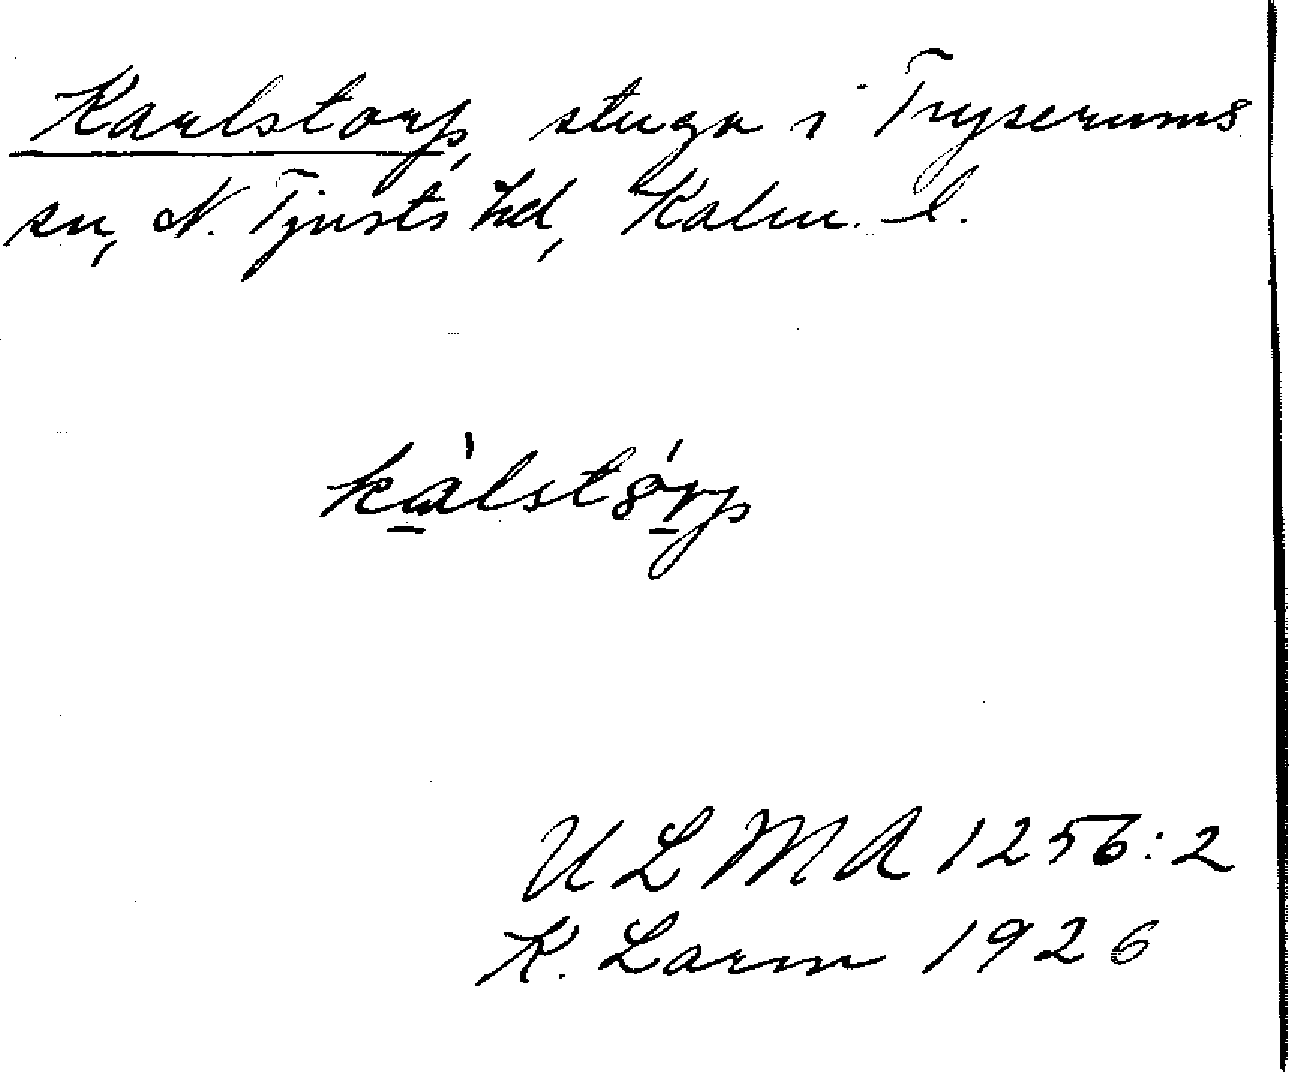 Karlstorp, stuga i Tryserums
sn, N. Tjusts hd, Kalm. l.
kàlstȣ́rp
ULMA 1256:2
K. Larm 1926